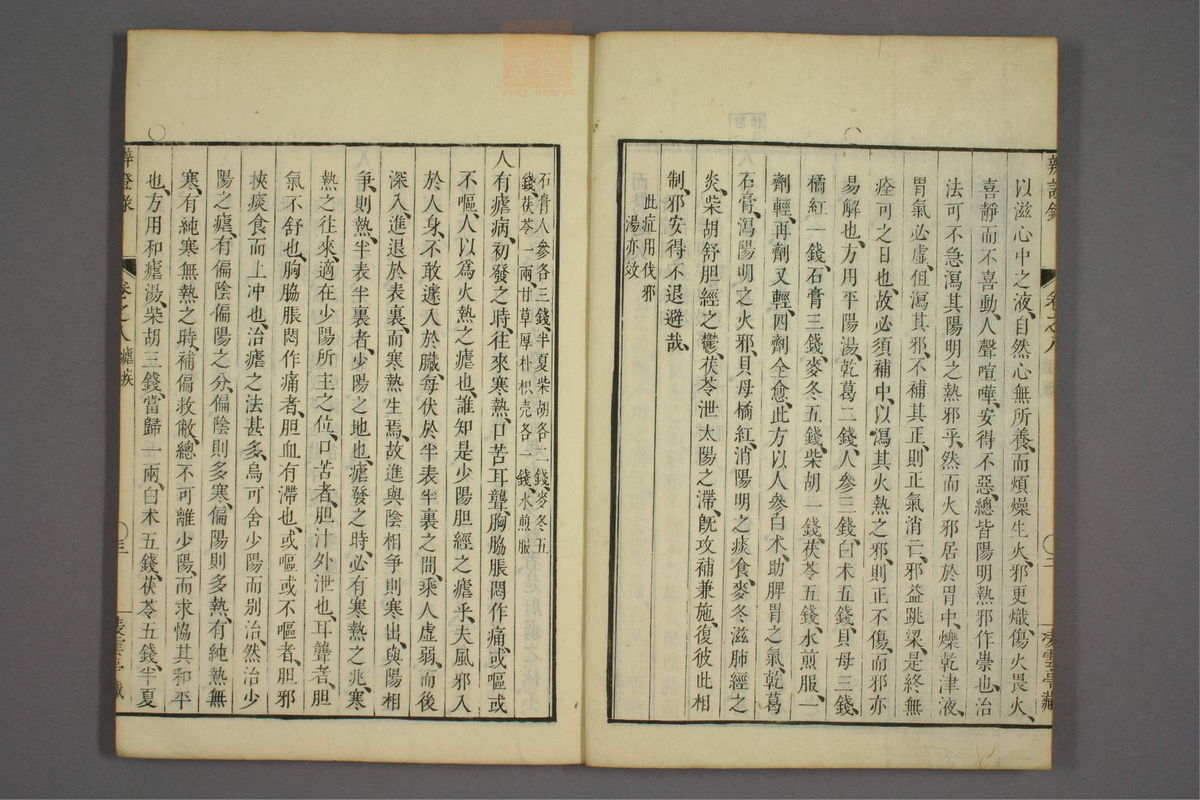 以滋心中之液、自然心無所養、而煩燥生火、邪更熾、傷火畏火、
喜靜而不喜動、人聲喧嘩、安得不惡、總皆陽明熱邪作祟也、治
法可不急瀉其陽明之熱邪乎、然而火邪居於胃中、爍乾津液、
胃氣必虛、但瀉其邪、不補其正、則正氣消亡、邪益跳梁、是終無
痊可之日也、故必須補中、以瀉其火熱之邪、則正不傷、而邪亦
易解也、方用平陽湯、乾葛二錢、人參三錢、白术五錢、貝母三錢、
橘紅一錢、石膏三錢、麥冬五錢、柴胡一錢、茯苓五錢、水煎服、一
劑輕、再劑又輕、四劑全愈、此方以人參白术、助脾胃之氣、乾葛
石膏、瀉陽明之火邪、貝母橘紅、消陽明之痰食、麥冬滋肺經之
炎、柴胡舒胆經之鬱、茯苓泄太陽之滯、既攻補兼施、復彼此相
制、邪安得不退避哉、
此症用伐邪
湯亦效
石膏人參各三錢、半夏柴胡各二錢、麥冬五
錢、茯苓一兩、甘草厚朴枳壳各一錢、水煎服
人有瘧病、初發之時、往來寒熱、口苦耳聾、胸脇脹悶作痛、或嘔或
不嘔、人以為火熱之瘧也、誰知是少陽胆經之瘧乎、夫風邪入
於人身、不敢遽入於臟、每伏於半表半裏之間、乘人虛弱、而後
深入、進退於表裏、而寒熱生焉、故進與陰相争則寒出、與陽相
争、則熱、半表半裏者、少陽之地也、瘧發之時、必有寒熱之兆、寒
熱之往來、適在少陽所主之位、口苦者、胆汁外泄也、耳聾者、胆
氣不舒也、胸脇脹悶作痛者、胆血有滯也、或嘔或不嘔者、胆邪
挾痰食而上冲也、治瘧之法甚多、烏可舍少陽而別治、然治少
陽之瘧、有偏陰偏陽之分、偏陰則多寒、偏陽則多熱、有純熱無
寒、有純寒無熱之時、補偏救敝、總不可離少陽、而求恊其和平
也、方用和瘧湯、柴胡三錢、當歸一兩、白术五錢、茯苓五錢、半夏
辨證錄 卷之八 瘧疾 三